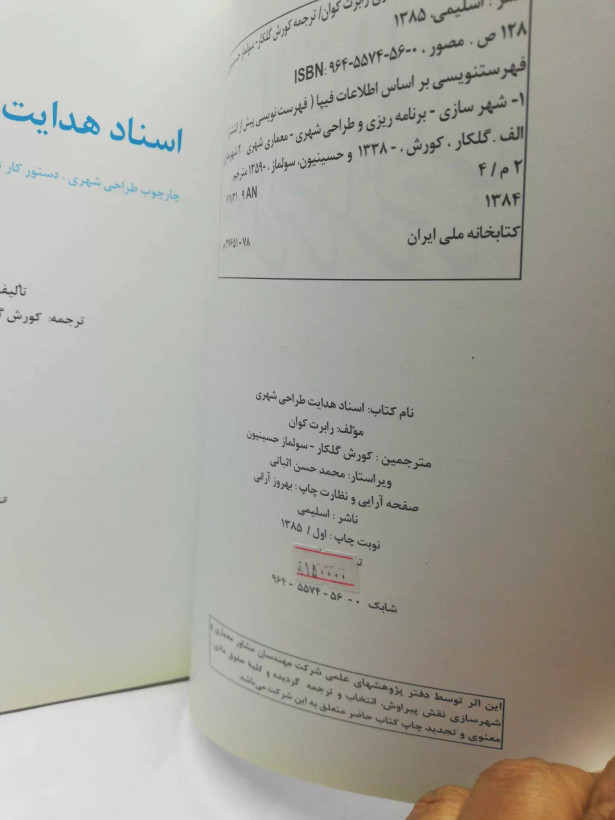 ر : اسلیمی، ۱۳۸۵
رابرت کوان/ ترجمه کورش گلکار- سولماز
۱۲۸ ص . مصور .
ISBN: ۹۶۴-۵۵۷۴-۵۶-۰
فهرستنویسی بر اساس اطلاعات فیپا ( فهرست نویسی پیش از انتشار
۱- شهر سازی - برنامه ریزی و طراحی شهری - معماری شهری . ۲
الف . گلکار ، کورش ، ۱۳۳۸ - و حسینیون، سولماز، ۱۳۵۹- مترجم
۲ م / ۴
۹ AN
۱۳۸۴
کتابخانه ملی ایران
اسناد هدایت
چارچوب طراحی شهری ، دستور کار
تألیف
ترجمه: کورش
نام کتاب: اسناد هدایت طراحی شهری
مؤلف: رابرت کوان
مترجمین : کورش گلکار - سولماز حسینیون
ویراستار: محمد حسن اثباتی
صفحه آرایی و نظارت چاپ : بهروز آرانی
ناشر : اسلیمی
نوبت چاپ : اول / ۱۳۸۵
۱۵۰۰۰۰
شابک ۰ - ۵۶ - ۵۵۷۴ - ۹۶۴
این اثر توسط دفتر پژوهشهای علمی شرکت مهندسان مشاور معماری و
شهرسازی نقش پیراوش، انتخاب و ترجمه گردیده و کلیۀ حقوق مادی
معنوی و تجدید چاپ کتاب حاضر متعلق به این شرکت می‌باشد.